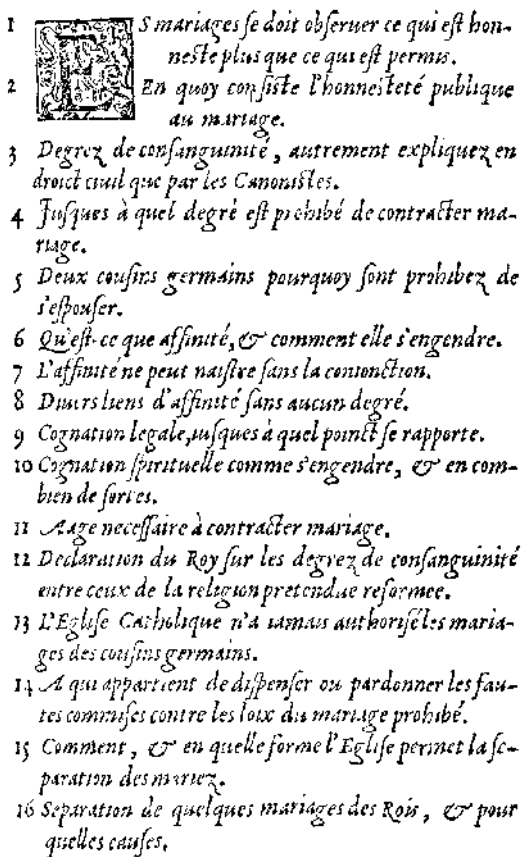 1 ES mariages se doit obseruer ce qui est hon-
neste plus que ce qui est permis.
2 En quoy consiste l'honnesteté publique
au mariage.
3 Degrez de consanguinité, autrement expliquez en
droict ciuil que par les Canonistes.
4 Iusques à quel degré est prohibé de contracter ma-
riage.
5 Deux cousins germains pourquoy sont prohibez de
s'espouser.
6 Qu'est-ce que affinité, & comment elle s'engendre.
7 L'affinité ne peut naistre sans la conionction.
8 Diuers liens d'affinité sans aucun degré.
9 Cognation legale, iusques à quel poinct se rapporte.
10 Cognation spirituelle comme s'engendre, & en com-
bien de sortes.
11 Aage necessaire à contracter mariage.
12 Declaration du Roy sur les degrez de consanguinité
entre ceux de la religion pretendue reformee.
13 L'Eglise Catholique n'a iamais authorisé les maria-
ges des cousins germains.
14 A qui appartient de dispenser ou pardonner les fau-
tes commises contre les loix du mariage prohibé.
15 Comment, & en quelle forme l'Eglise permet la se-
paration des mariez.
16 Separation de quelques mariages des Rois, & pour
quelles causes.